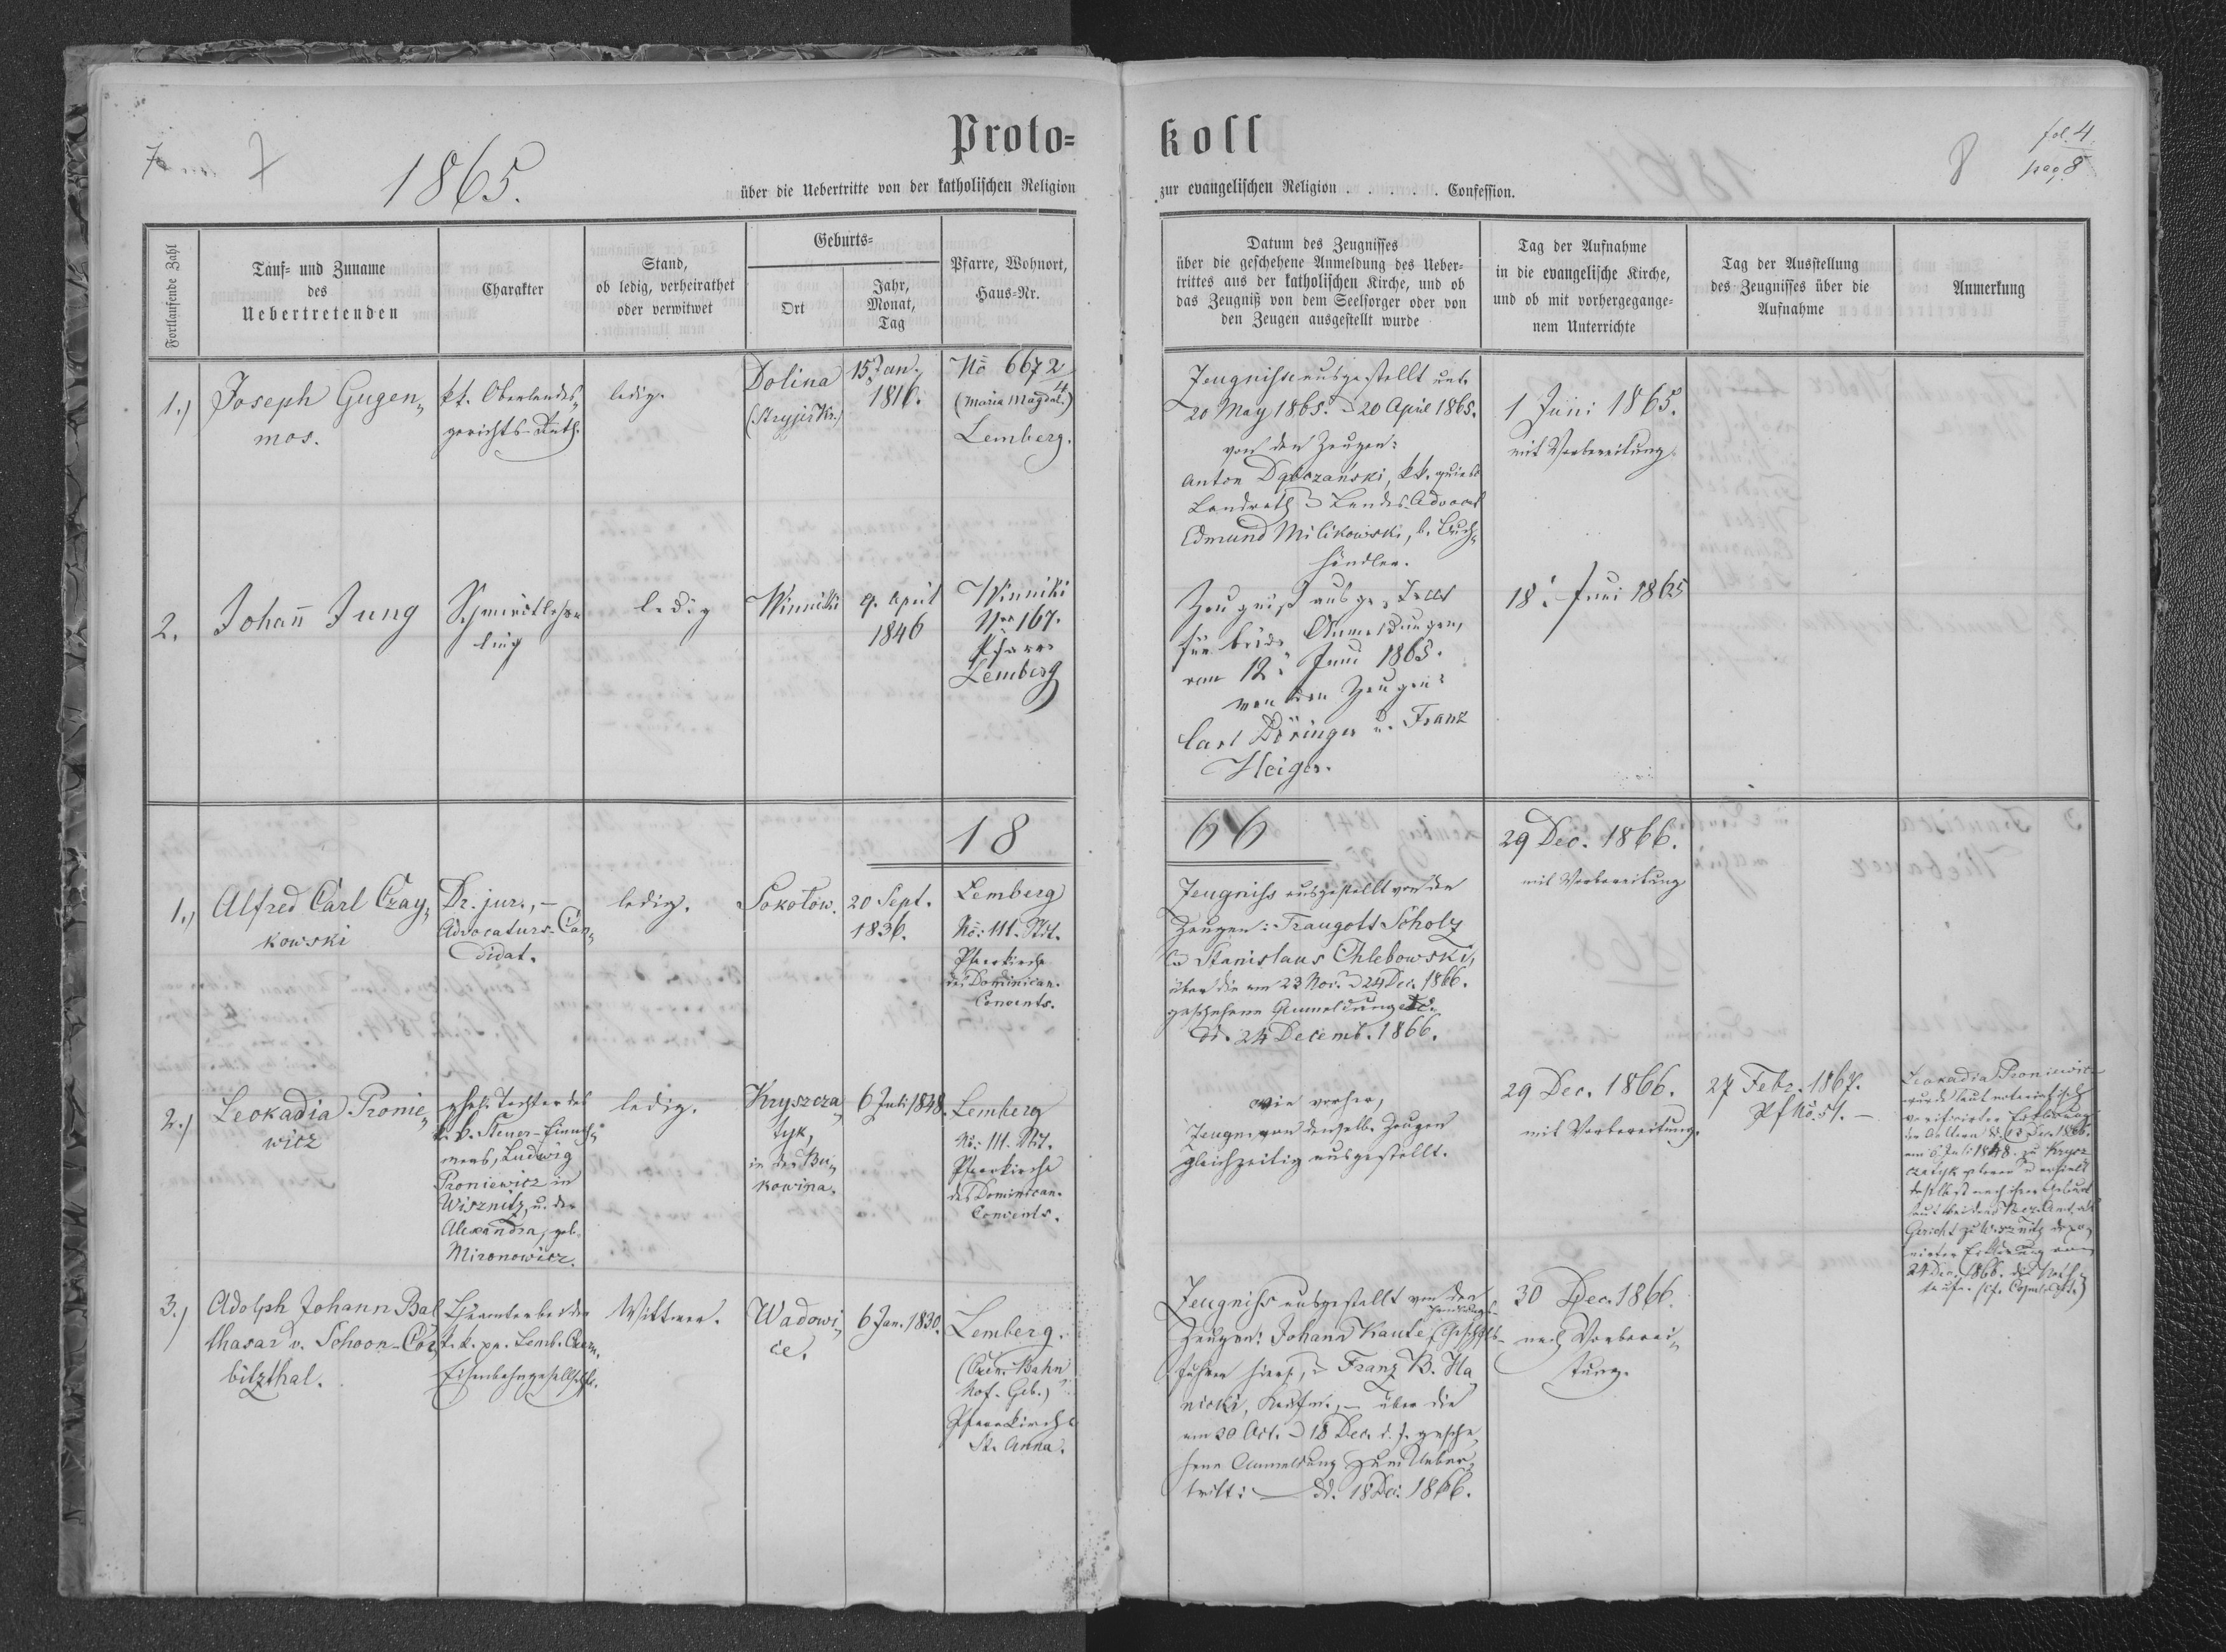 7
1865.
Proto=
koll
8
fol. 4
pag. 8
über die Uebertritte von der katholischen Religion
zur evangelischen Religion . . . . . . Confession.
Fortlaufende Zahl
Tauf= und Zuname
des
Uebertretenden
Charakter
Stand,
ob ledig, verheirathet
oder verwitwet
Geburts=
Ort
Jahr,
Monat,
Tag
Pfarre, Wohnort,
Haus=Nr.
Datum des Zeugnisses
über die geschehene Anmeldung des Ueber=
trittes aus der katholischen Kirche, und ob
das Zeugniß von dem Seelsorger oder von
den Zeugen ausgestellt wurde
Tag der Aufnahme
in die evangelische Kirche,
und ob mit vorhergegange=
nem Unterrichte
Tag der Ausstellung
des Zeugnisses über die
Aufnahme
Anmerkung
1.)
Joseph Gugen„
mos.
kk. Oberlandes„
gerichts-Rath.
ledig.
Dolina
(Stryjer Kr.)
15 Jan.
1816.
No 667 2/4
(Maria Magdal.)
Lemberg.
Zeugnisse ausgestellt unt.
20 May 1865. 20 April 1865.
von den Zeugen:
Anton Dąbczański, kk. quiesc.
Landrath Landes-Advocat
Edmund Milikowski, b. Buch„
händler.
1 Juni 1865.
mit Vorbereitung.
2.
Johan̄ Jung
ling
ledig
Winniki
9. April
1846
Winniki
Nro 167.
Pfarre
Lemberg
Zeugniß ausge-
für beide Anmeldungen,
vom 12. Juni 1865.
von den Zeugen:
Carl Döringer u. Franz
Heiger.
18. Juni 1865
18
66
1.)
Alfred Carl Czay„
kowski
Dr. jur., —
Advocaturs-Can„
didat.
ledig.
Sokołow.
20 Sept.
1836.
Lemberg
No: 111. St.
Pfarrkirche
des Dominican.
Convents.
Zeugniss ausgestellt von den
Zeugen: Traugott Scholz
& Stanislaus Chlebowski,
über die am 23 Nov. 24 Dec. 1866.
geschehene Anmeldung etc.
dd. 24 Decemb. 1866.
29 Dec. 1866.
mit Vorbereitung
2.)
Leokadia Pronie„
wicz
ehel. Tochter des
k. k. Steuer-Einneh„
mers, Ludwig
Proniewicz in
Wisznitz, u. der
Alexandra, geb.
Mironowicz.
ledig.
Kryszcza„
tyk,
in der Bu„
kowina.
6 Juli 1848.
Lemberg
No: 111. St.
Pfarrkirche
des Dominican.
Convents.
wie vorher,
Zeugn. von denselb. Zeugen
gleichzeitig ausgestellt.
29 Dec. 1866.
mit Vorbereitung.
27 Febr. 1867.
Pf No. 51. —
Leokadia Proniewicz
wurde laut
der Aeltern
am 6 Juli 1848. zu Krysz
czatyk geboren erhielt
nach ihrer Geburt
Gericht zu Wisznitz depo„
nirter Erklärung vom
24 Dec. 1866. die Noth„
taufe.
3.)
Adolph Johann Bal
thasar v. Schoon-Cor„
bitzthal.
k. k. pr. Lemb. Czern.
Eisenbahngesellschft.
Wittwer.
Wadowi„
ce.
6 Jan. 1830.
Lemberg.
(Czer. Bahn
hof-Geb.)
Pfarrkirche
St. Anna.
Zeugniss ausgestellt von den
Zeugen: Johann Kaute,
führer hierst, & Franz B. Ha„
nicki, Kaufm., — über die
am 30 Oct. 18 Dec. d. J. gesche„
hene Anmeldung zum Ueber„
tritt: — dd. 18 Dec. 1866.
30 Dec. 1866.
nach Vorberei„
tung.